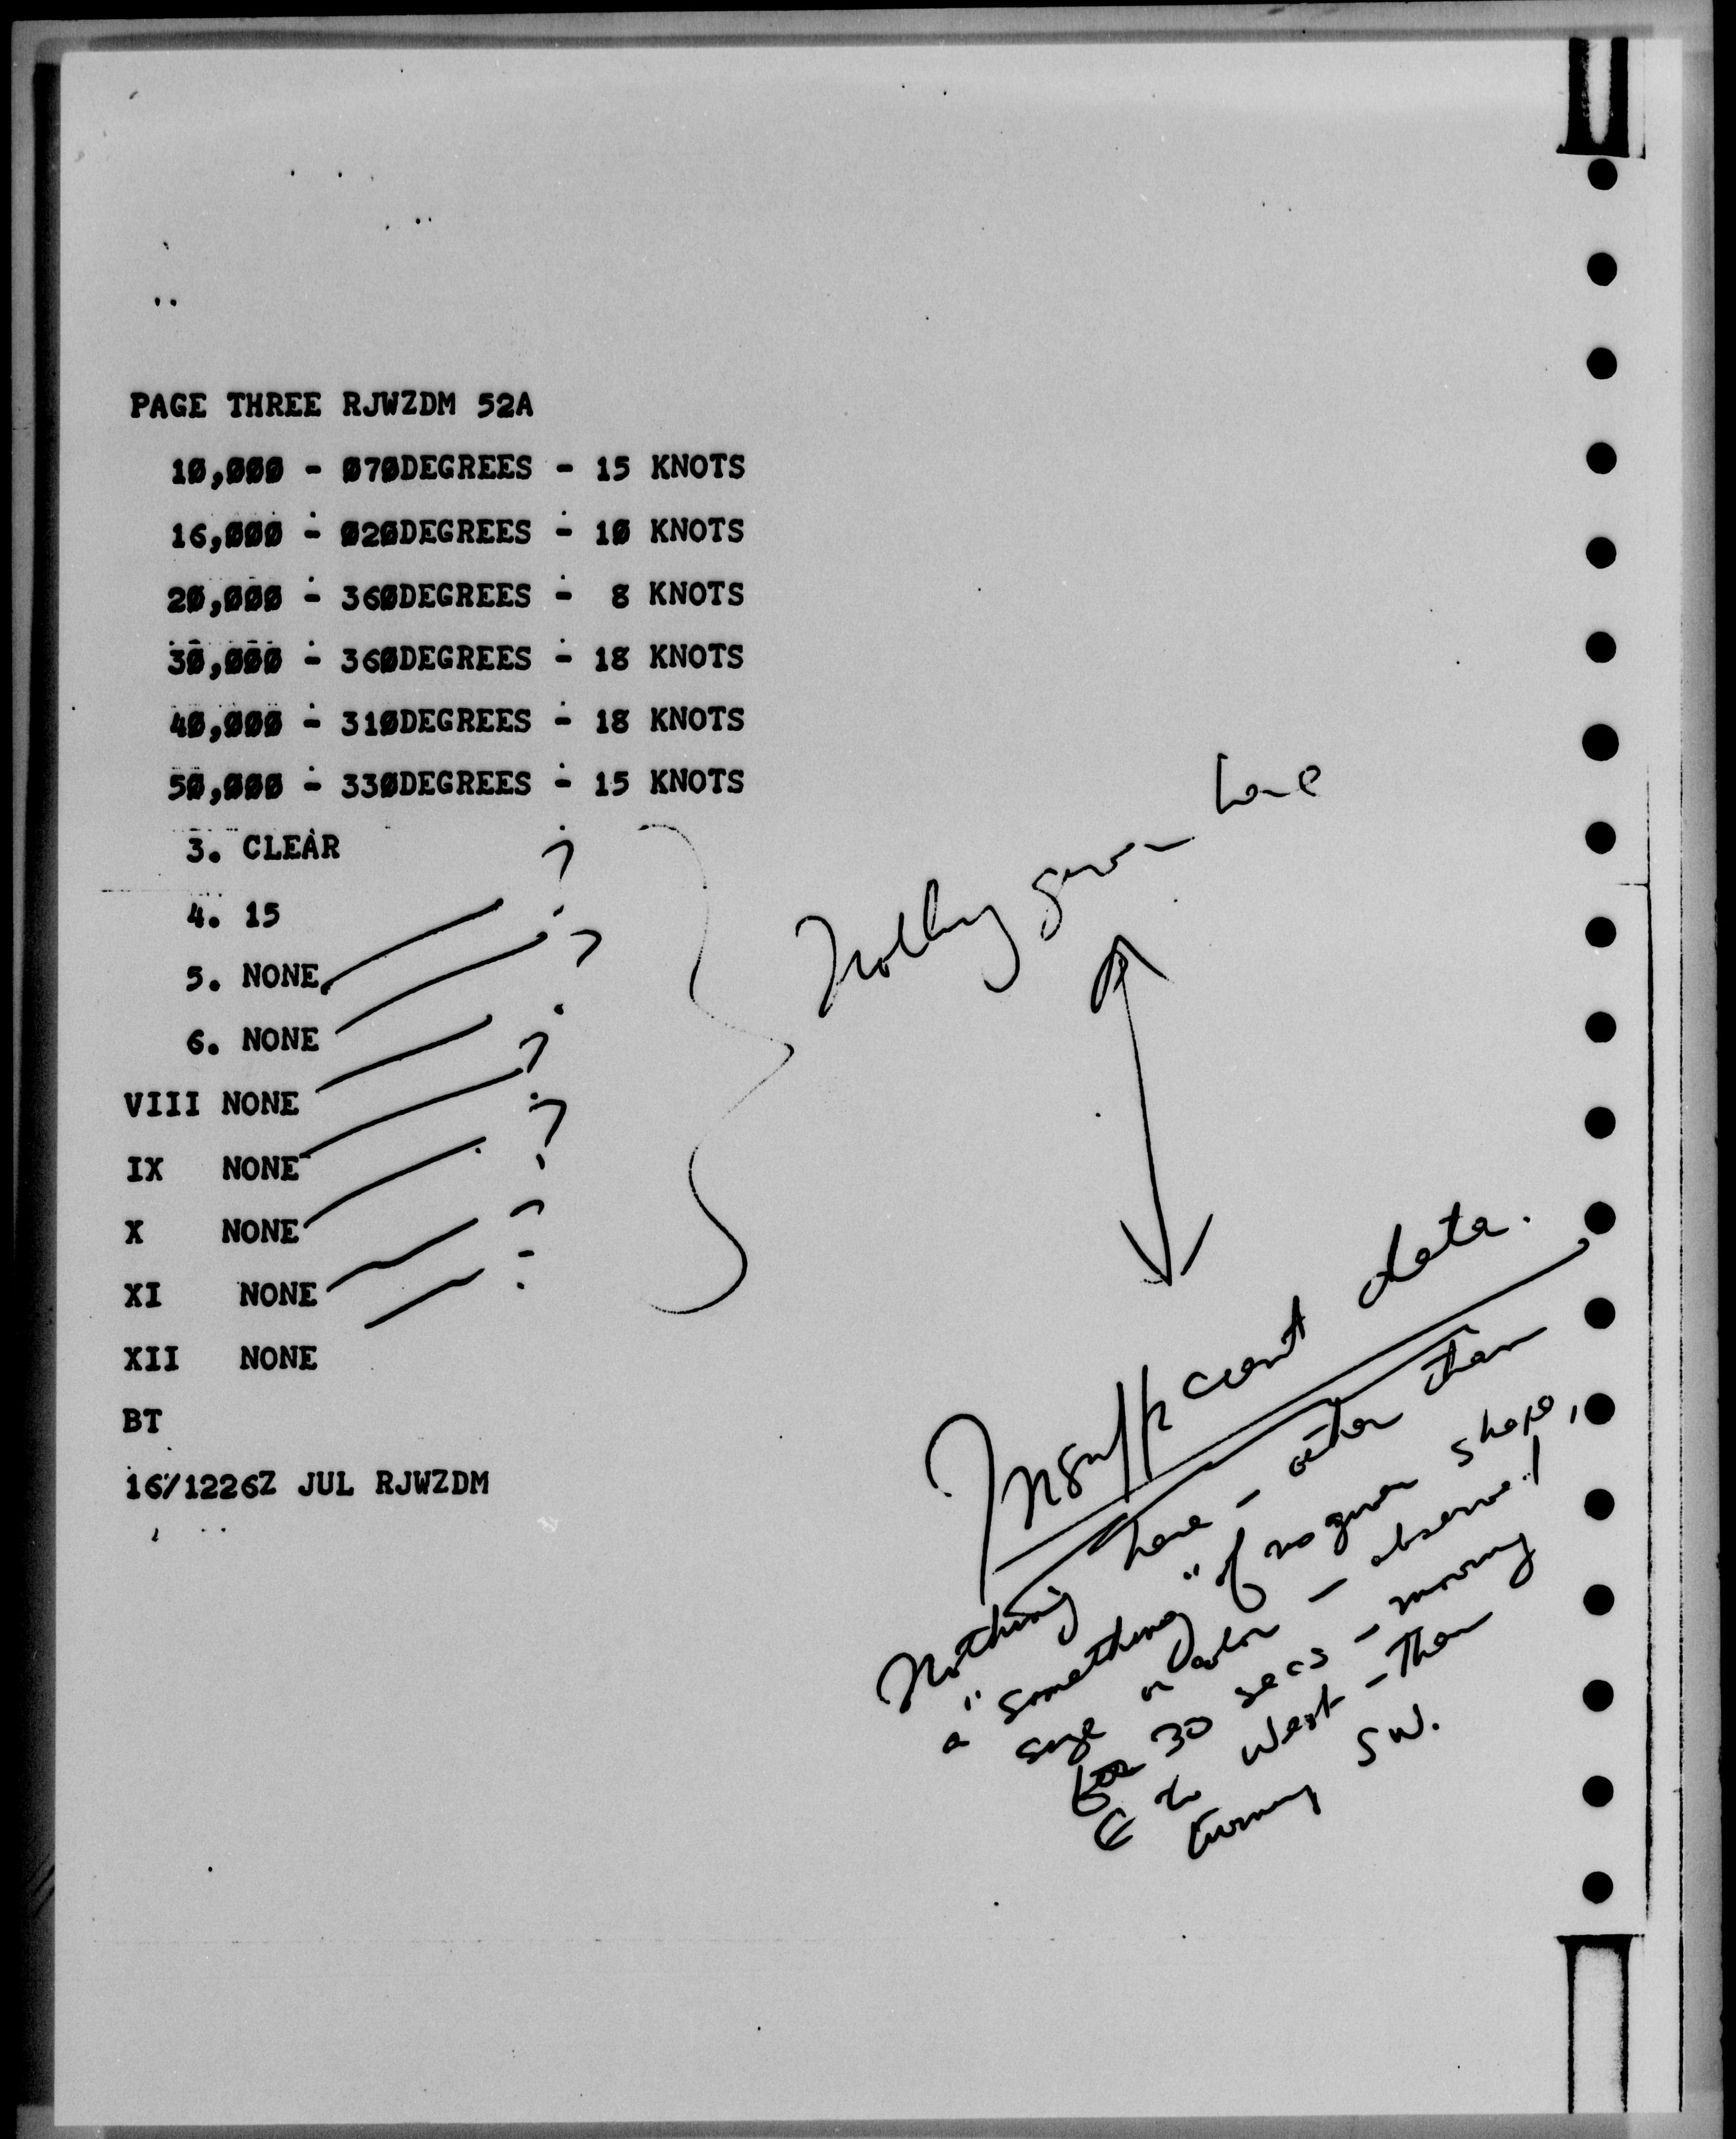 PAGE THREE RJWZDM 52A
10,000 - 070DEGREES - 15 KNOTS
16,000 - 020DEGREES - 10 KNOTS
20,000 - 360DEGREES - 8 KNOTS
30,000 - 360DEGREES - 18 KNOTS
40,000 - 310DEGREES - 18 KNOTS
50,000 - 330DEGREES - 15 KNOTS
3. CLEAR
4. 15
5. NONE ?
6. NONE ?
VIII NONE ?
IX NONE ?
X NONE ?
XI NONE
XII NONE
BT
16/1226Z JUL RJWZDM
Nothing given here
Insufficient data.
Nothing here - other than
a "something" of no given shape,
size or color - observed
for 30 secs - moving
E to West - then
turning SW.